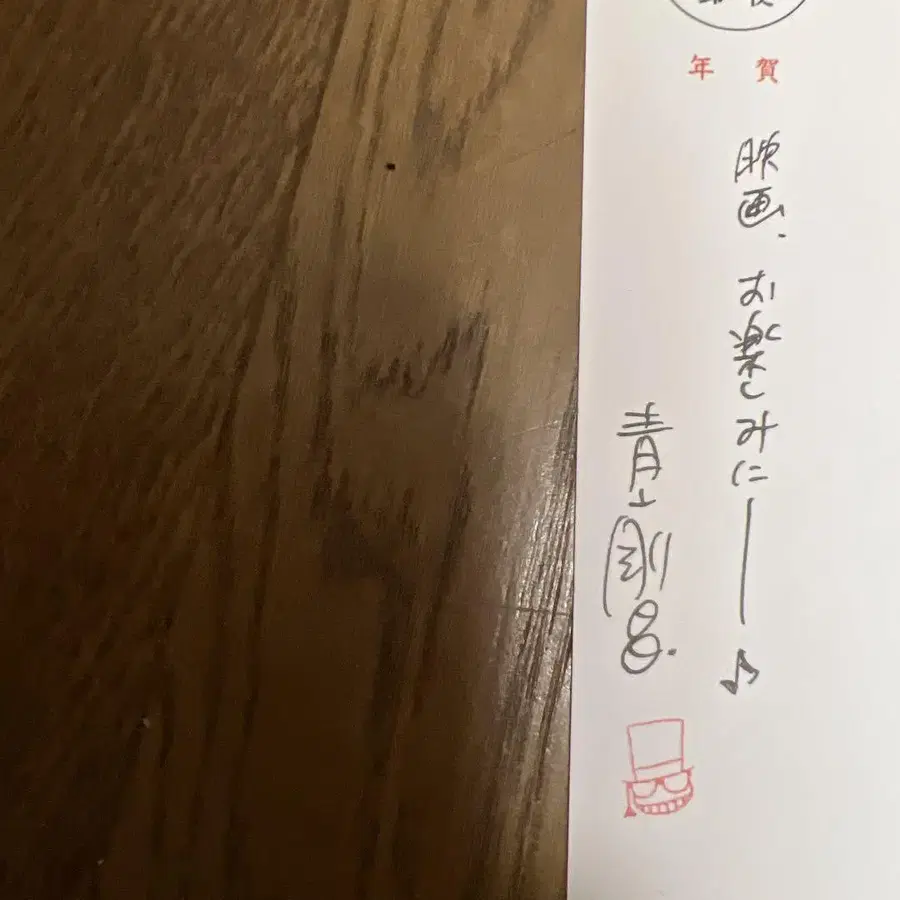 年賀
映画、お楽しみにー♪
青山剛昌.